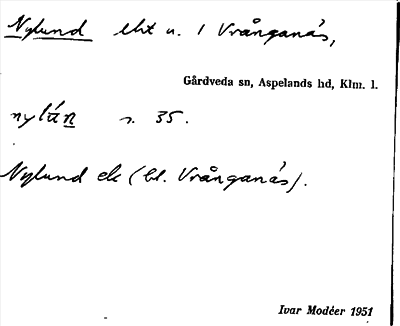 Nylund lht u. 1 Vrånganäs,
Gårdveda sn, Aspelands hd, Klm. l.
nylún s. 35.
Nylund ek (bl. Vrånganäs).
Ivar Modéer 1951